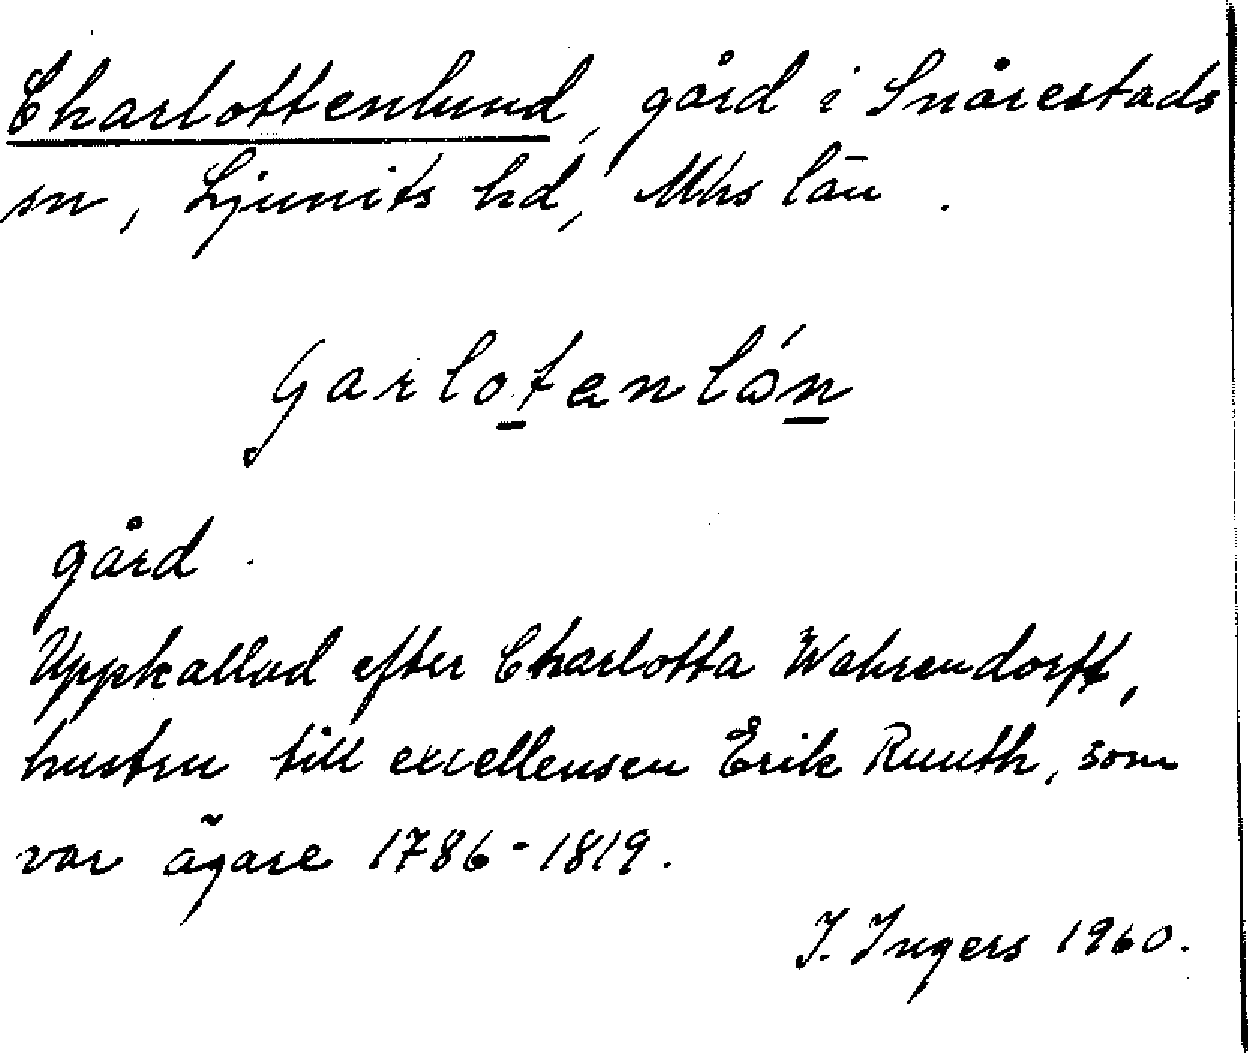 Charlottenlund, gård i Snårestads
sn, Ljunits hd, Mhs län.
ʃarlotenlón
gård.
Uppkallad efter Charlotta Wahrendorff,
hustru till excellensen Erik Ruuth, som
var ägare 1786-1819.
I. Ingers 1960.